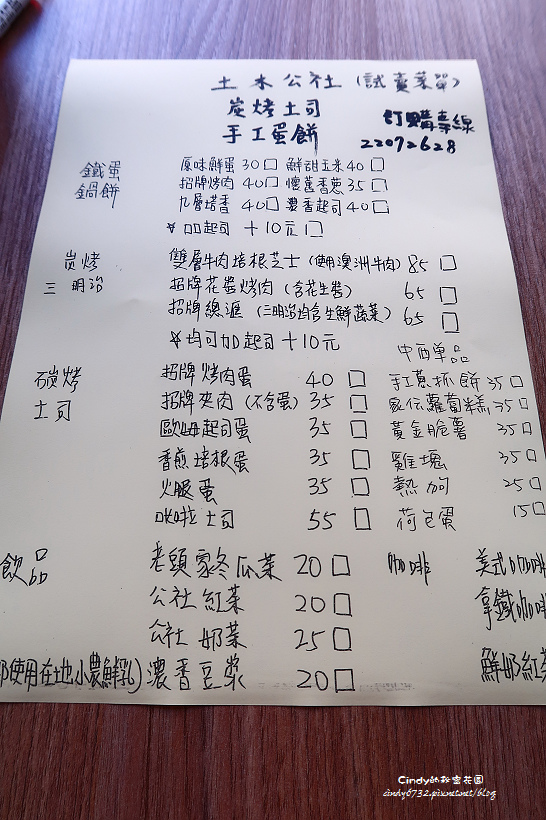 土木公社(試賣菜單)
炭烤土司
手工蛋餅
訂購專線
22072628
鐵蛋鍋餅
原味鮮蛋 30 □ 鮮甜玉米 40 □
招牌烤肉 40 □ 懷舊香蔥 35 □
九層塔香 40 □ 濃香起司 40 □
* 加起司 +10元 □
炭烤三明治
雙層牛肉培根芝士 (使用澳洲牛肉) 85 □
招牌花裝烤肉 (含花生裝) 65 □
招牌總滙 (三明治均含生鮮蔬菜) 65 □
* 均可加起司 +10元
碳烤土司
招牌烤肉蛋 40 □
招牌夾肉 (不含蛋) 35 □
歐姆起司蛋 35 □
香煎培根蛋 35 □
火腿蛋 35 □
咔啦土司 55 □
中西單品
手工蔥抓餅 35 □
家传蘿蔔糕 35 □
黃金脆薯 35 □
雞塊 35 □
熱狗 25 □
荷包蛋 15 □
飲品
老頭家冬瓜菜 20 □
公社紅茶 20 □
公社奶茶 25 □
濃香豆漿 20 □
奶使用在地小農鮮乳)
咖啡
美式咖啡
拿鐵咖啡
鮮奶紅茶
Cindy的秘密花園
cindy6732.pixnet.net/blog